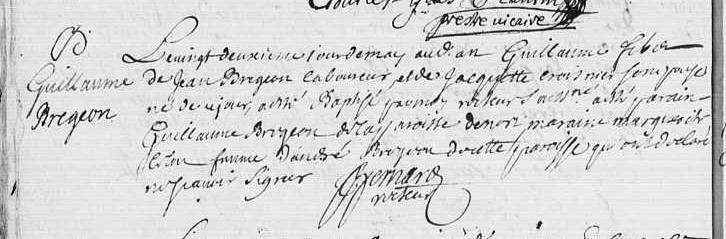 prestre vicaire
B
Guillaume
Bregeon
Le vingt deuxieme iour de may audit an Guillaume fils
de Jean Bregeon laboureur et de Jacquette Croisnier son epouse
né ce iour a esté Baptisé par moy recteur a esté parain
Guillaume Bregeon de la paroisse de nort maraine marguerite
femme d'andré Bregeon de cette paroisse qui ont declaré
ne scavoir signer
Bernard
recteur